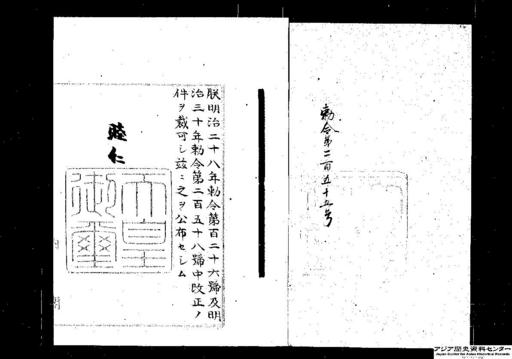 勅令第二百五十五号
朕明治二十八年勅令第百二十六號及明
治三十年勅令第二百五十八號中改正ノ
件ヲ裁可シ茲ニ之ヲ公布セシム
睦仁
天皇御璽
アジア歴史資料センター
Japan Center for Asian Historical Records